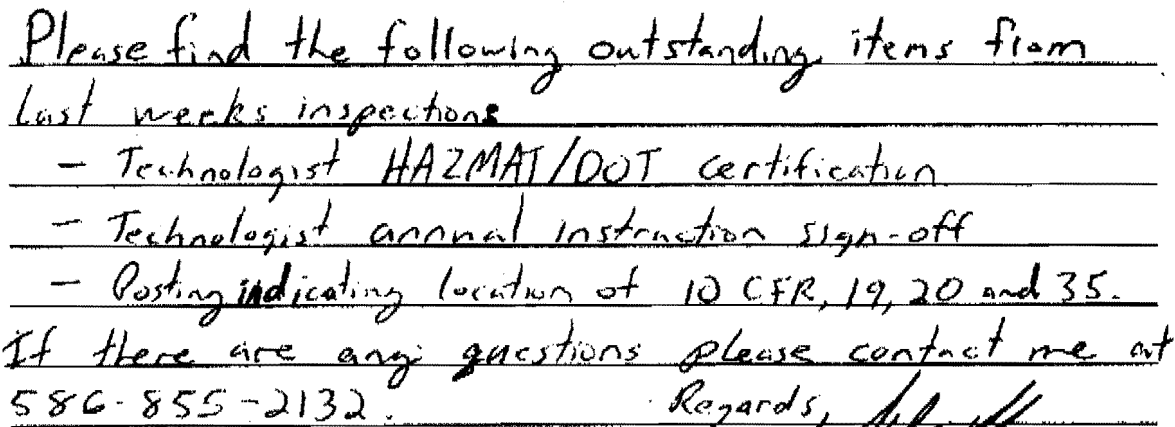 Please find the following outstanding items from
last weeks inspections
- Technologist HAZMAT/DOT certification
- Technologist annual instruction sign-off
- Posting indicating location of 10 CFR, 19, 20 and 35.
If there are any questions please contact me at
586-855-2132. Regards,